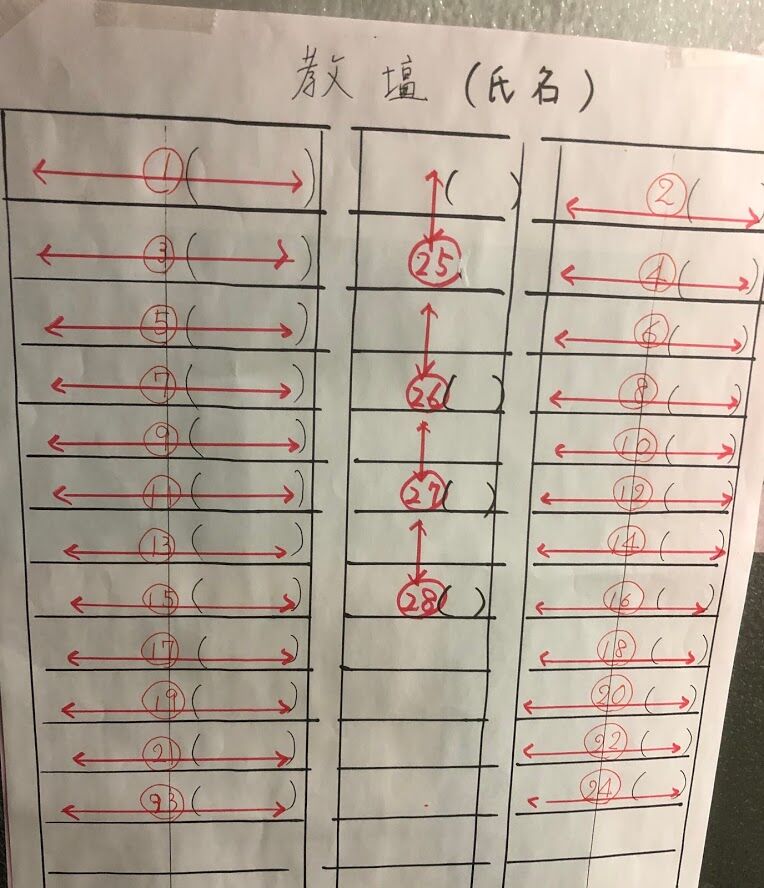 教壇(氏名)
①( ) ( ) ②( )
③( ) ㉕ ④( )
⑤( ) ⑥( )
⑦( ) ㉖( ) ⑧( )
⑨( ) ⑩( )
⑪( ) ㉗( ) ⑫( )
⑬( ) ⑭( )
⑮( ) ㉘( ) ⑯( )
⑰( ) ⑱( )
⑲( ) ⑳( )
㉑( ) ㉒( )
㉓( ) ㉔( )